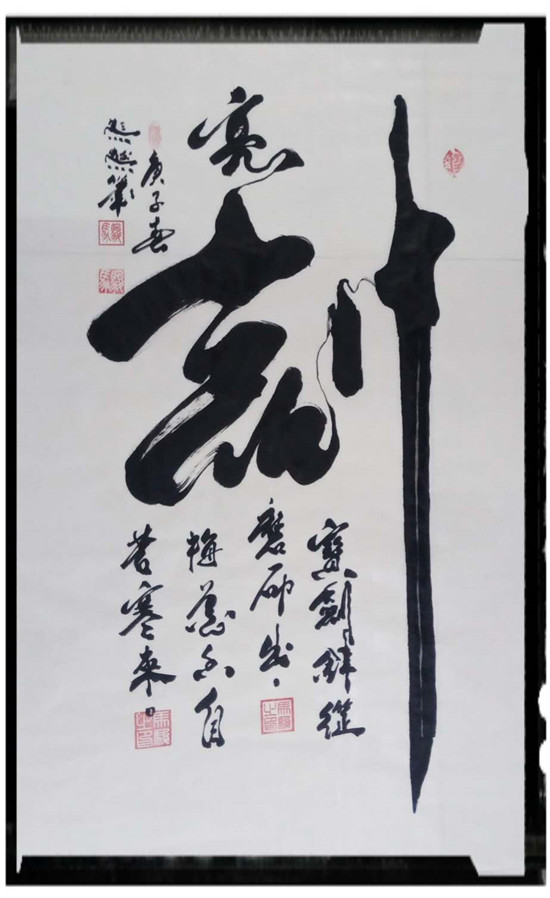 亮劍
寶劍鋒從
磨砺出
梅花香自
苦寒來
庚子春